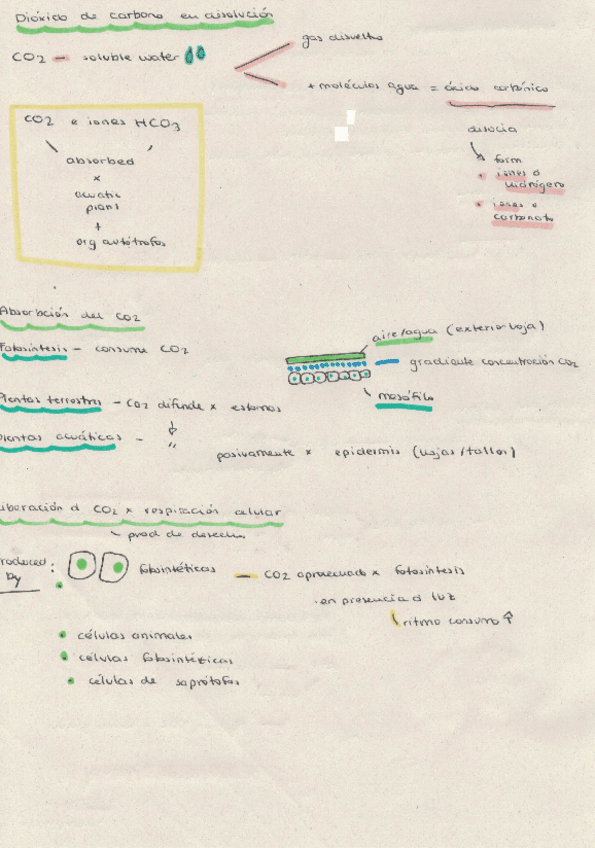 Dióxido de carbono en disolución
CO2 — soluble water
gas disuelto
+ moléculas agua = ácido carbónico
disocia
form
iones d hidrógeno
iones d carbonato
CO2 e iones HCO3
absorbed
x
acuatic
plans
+
org autótrofos
Absorbción del CO2
Fotosíntesis — consume CO2
aire/agua (exterior hoja)
gradiente concentración CO2
mesófilo
Plantas terrestres — CO2 difunde x estomas
Plantas acuáticas — " pasivamente x epidermis (hojas/tallos)
liberación d CO2 x respiración celular
prod de desecho
Produced by :
fotosintéticas — CO2 aprovechado x fotosíntesis
en presencia d luz
ritmo consumo ↑
células animales
células fotosintézicas
células de saprótofos